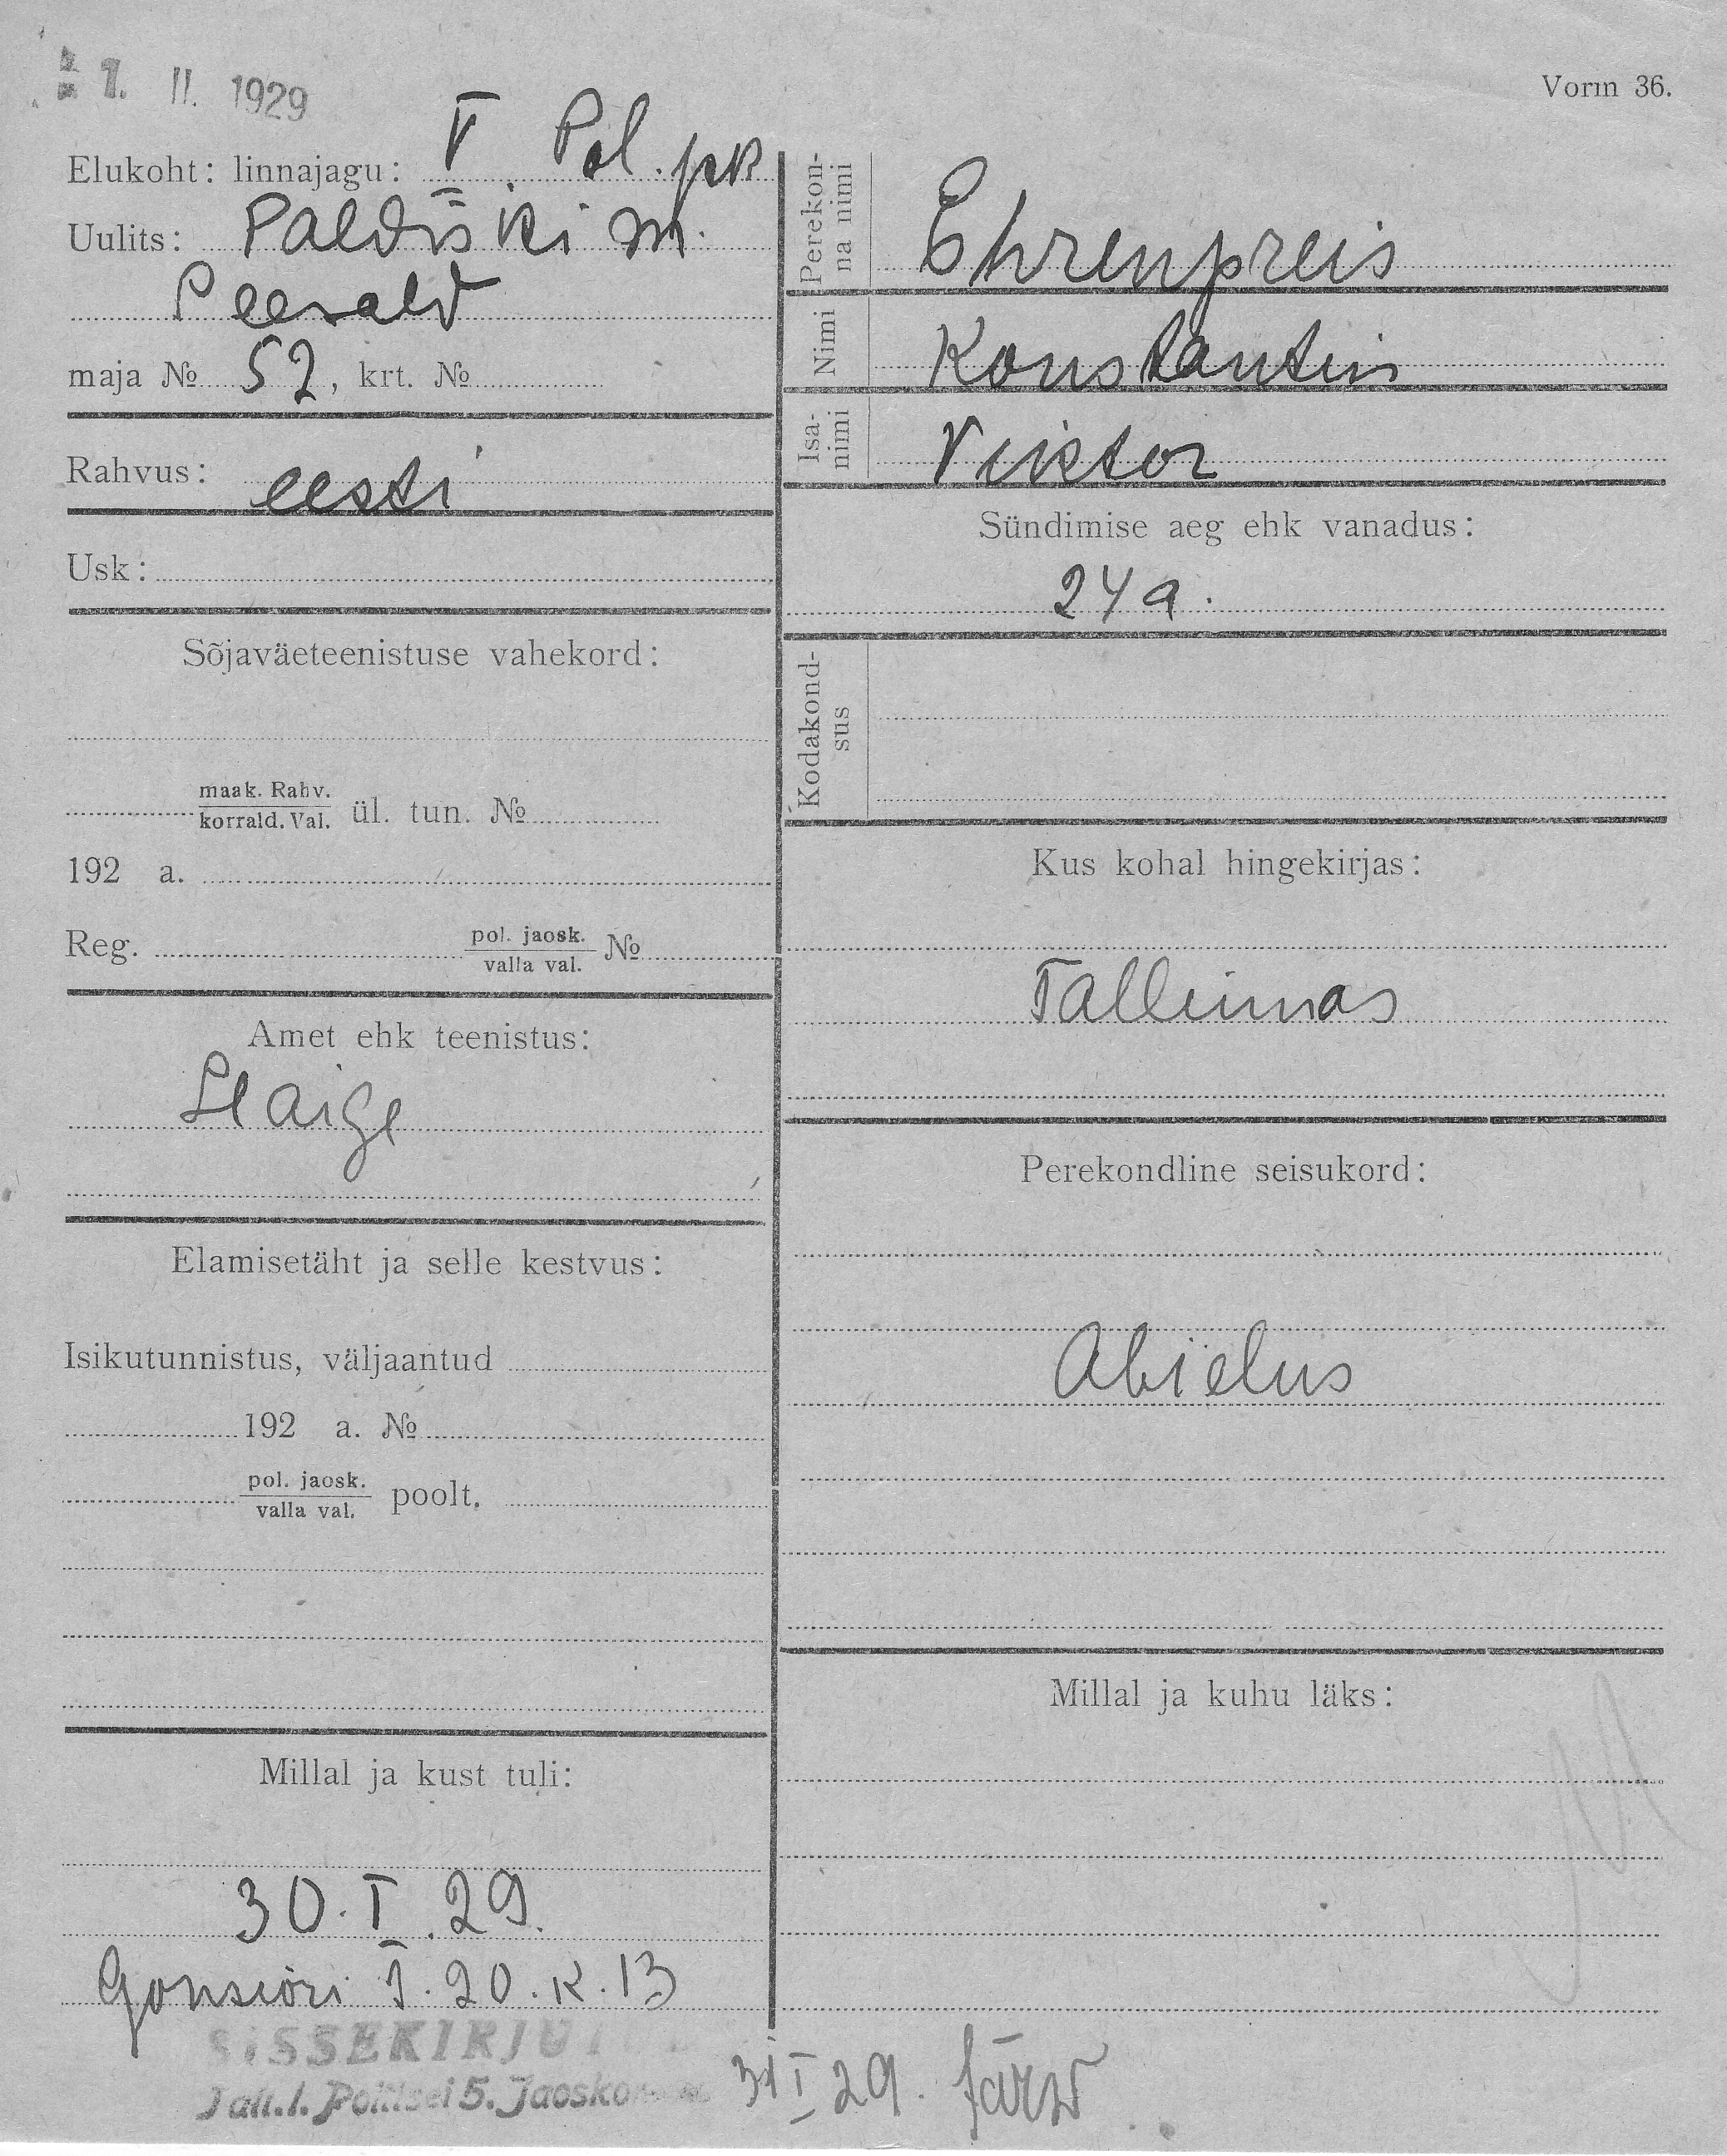 1. II. 1929
Vorm 36.
Elukoht: linnajagu: V Pol. jsk
Uulits: Paldiski m.
Seevald
maja № 52, krt. №
Rahvus: eesti
Usk:
Sõjaväeteenistuse vahekord:
maak. Rahv.
korrald. Val. ül. tun. №
192 a.
Reg. pol. jaosk.
valla val. №
Amet ehk teenistus:
Haige
Elamisetäht ja selle kestvus:
Isikutunnistus, väljaantud
192 a. №
pol. jaosk.
valla val. poolt.
Millal ja kust tuli:
30. I. 29.
Gonsiori t. 20. k. 13
SISSEKIRJUT
Tall. l. Politsei 5. Jaoskon
31 I 29. Järw
Perekon-
na nimi Ehrenpreis
Nimi Konstantin
Isa-
nimi Viktor
Sündimise aeg ehk vanadus:
24 a.
Kodakond-
sus
Kus kohal hingekirjas:
Tallinnas
Perekondline seisukord:
Abielus
Millal ja kuhu läks: